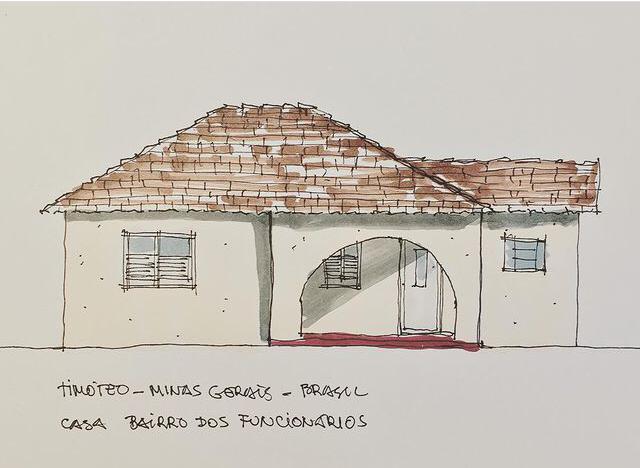 TIMÓTEO - MINAS GERAIS - BRASIL
CASA BAIRRO DOS FUNCIONÁRIOS